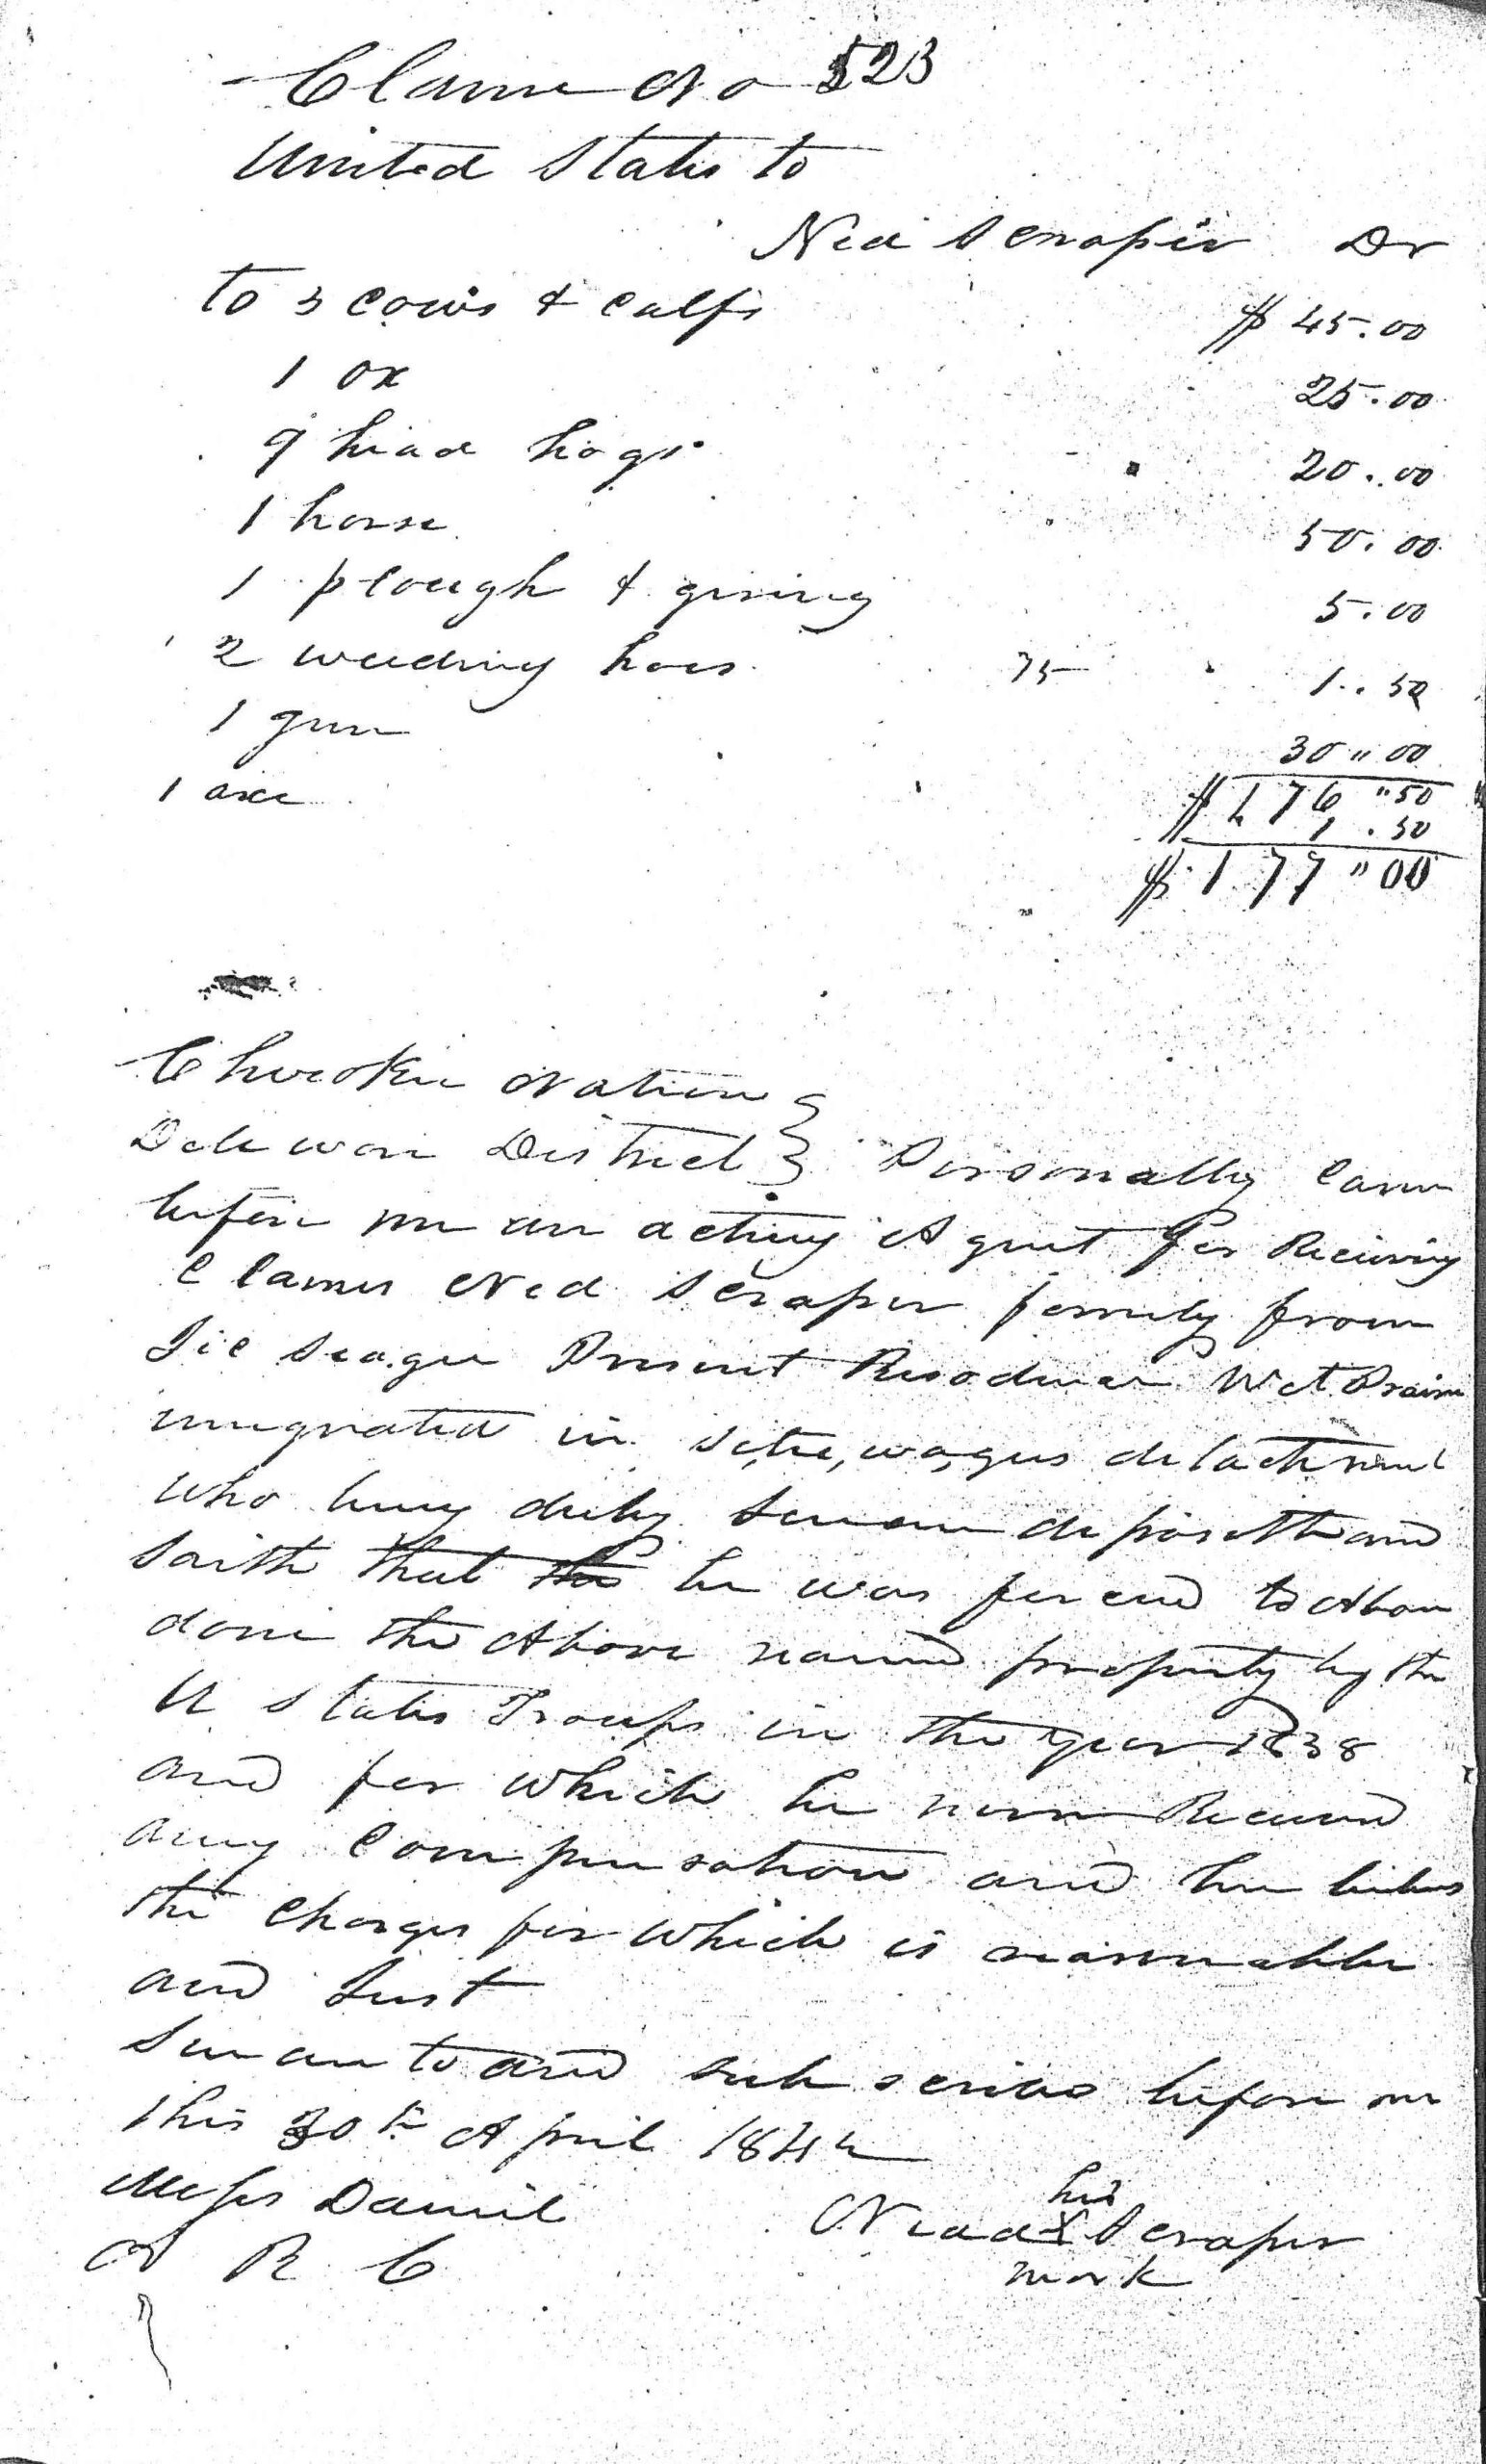 Clame No 523
United States to
Ned Scraper Dr
to 3 cows & calfs $ 45.00
1 ox 25.00
9 head hogs 20.00
1 horse 50.00
1 plough & gering 5.00
2 weeding hoes 75 1.50
1 gun 30"00
$176"50
1 axe 1.50
$177"00
Cherokee Nation
Delewore District } Personally came
before me an acting Agent for Receiving
Clames Ned Scraper formly from
Present Residence Wet Prairie
emegrated in detachment
who being duly sworn deposeth and
saith that he was forced to Aban
done the Above named property by the
U States Troops in the year 1838
and for which he never Received
any Compensation and he belives
the Charges for which is reasonable
and Just
Swarn to and subscribe before me
this 30th April 1842
his
Moses Daniel Nead X Scraper
mark
A R C